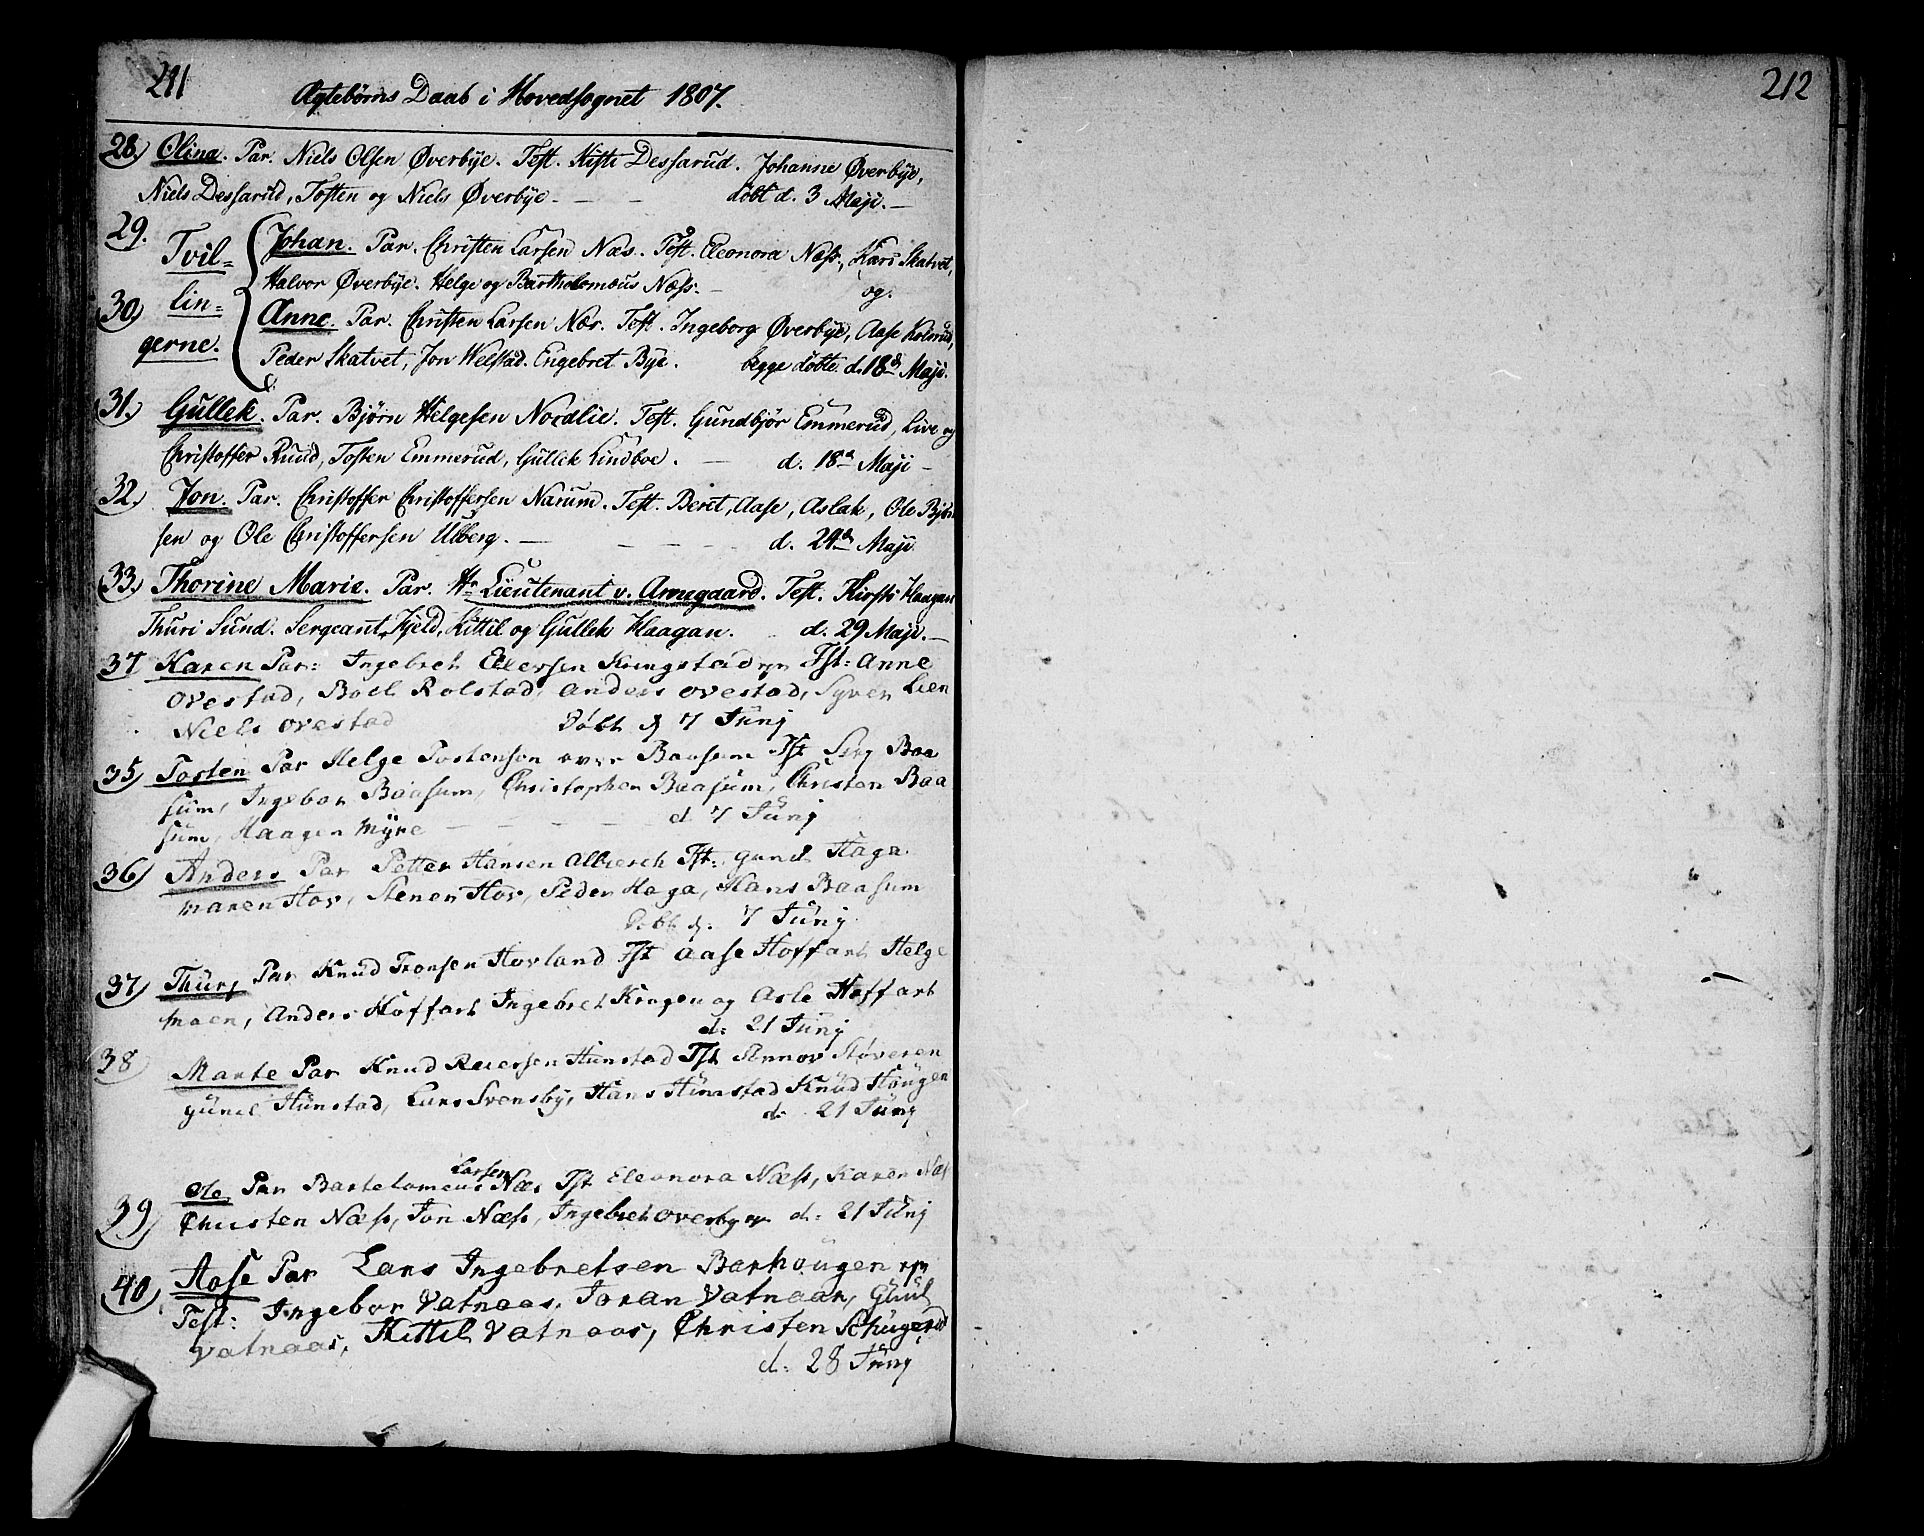 211
Ægtebørns Daab i Hovedsognet 1807.
28.) Olina. Par. Niels Olsen Øverbye. Test. Kisti Dessarud. Johanne Øverbye,
Niels Dessarud, Tosten og Niels Øverbye. døbt d. 3 Maji.
29. Tvil- Johan. Par. Christen Larsen Næs. Test. Eleonora Næss, Kari Skatvet,
Halvor Øverbye. Helge og Bartholomæus Næss. og.
30) lin- Anne. Par. Christen Larsen Nær. Test. Ingeborg Øverbye, Aase Kolsrud,
gerne. Peder Skatvet, Jon Welstad. Engebret Bye. begge døbte d. 18d Maji.
31.) Gullek. Par. Bjørn Helgesen Nordlie. Test. Gundbjør Emmerud, Live og
Christoffer Ruud, Tosten Emmerud, Gullek Lindboe. d. 18d Maji
32.) Jon. Par. Christoffer Christoffersen Narum. Test. Beret, Aase, Aslak, Ole Bjørn
sen og Ole Christoffersen Ulberg. d. 24d Maji
33.) Thorine Marie. Par. Hr Lieutenant v. Arnegaard. Test. Kirsti Haagan
Thuri Sund. Sergeant Kjeld, Kittil og Gullek Haagan. d. 29 Maji.
37 Karen Par: Ingebret Ellersen Kringstad Tst: Anne
Ovestad, Boel Rolstad, Anders Ovestad, Syver Lien
Niels Ovestad Døbt d 7 Junj
35) Tosten Par Helge Tostensen over Baasum Tst Sirj Baa
sum, Ingebor Baasum, Christopher Baasum, Christen Baa
sum, Haagen Myre d 7 Junj
36) Anders Par Petter Hansen Tst: Gunil Haga
Maren Hov, Stener Hov, Peder Haga, Hans Baasum
Døbt d. 7 Junj
37) Thurj Par Knud Tronsen Hovland Tst Aase Hoffart Helge
Moen, Anders Hoffart Ingebret Kragen og Asle Hoffart
d: 21 Junj
38 Marte Par Knud Reiersen Hunstad Tst Annov Støveren
Gunil Hunstad, Lars Svensby, Hans Hunstad Knud Hougen
d: 21 Junj
Larsen
39) Ole Par Bartelomeus Næs Tst Eleonora Næss, Karen Næs
Christen Næss, Jon Næss, Ingebret overbye d: 21 Junj
40) Aase Par Lars Ingebretsen Barhougen
Test: Ingebor Vatnaas, Joran Vatnaas, Guul
Vatnaas, Kittil Vatnaas, Christen Schugerud
d: 28 Junj
212